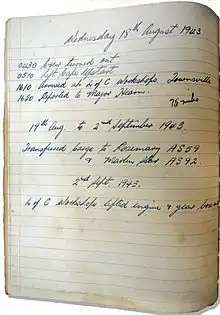 Wednesday 18th August 1943
0430 Crew turned out
0510 Left
1610 Arrived at L of C Workshops. Townsville
1630 Reported to Major Hearn.
76 miles
19th Aug. to 2nd September 1943.
Transferred cargo to Rosemary AS59
& Marlin AS92.
2nd Sept. 1943.
L of C Workshops lifted engine & gear